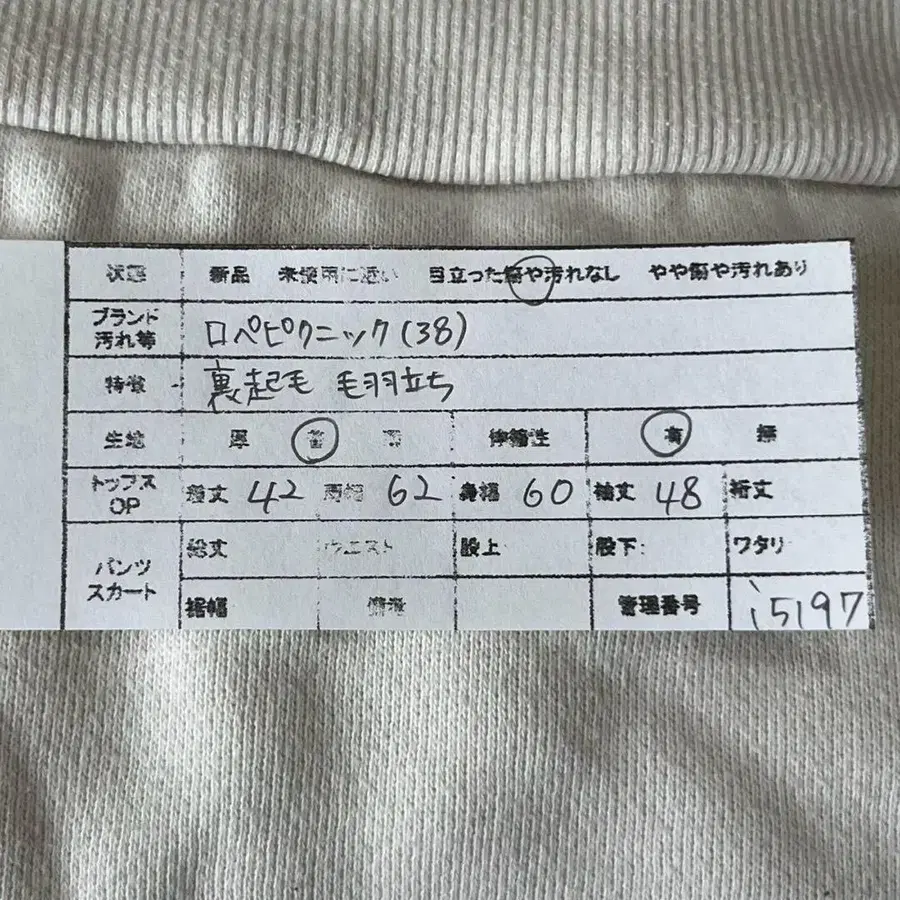 状態 新品 未使用に近い 目立った傷や汚れなし やや傷や汚れあり
ブランド
汚れ等 ロペピクニック(38)
特徴 裏起毛 毛羽立ち
生地 厚 普 薄 伸縮性 有 無
トップス
OP 着丈 42 肩幅 62 身幅 60 袖丈 48 裄丈
パンツ
スカート 総丈 ウエスト 股上 股下: ワタリ
裾幅 備考 管理番号 i5197